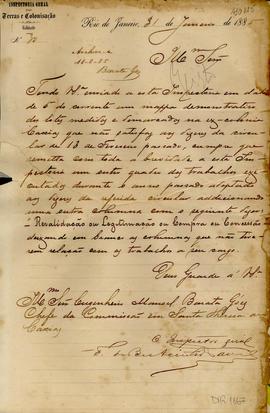 INSPECTORIA GERAL
DAS
Terras e Colonisação
Rio de Janeiro, 31 Janeiro de 1885
Archive
Barata Góes
Illmo Snr
Tendo Vce enviado a esta Inspectoria em data
de 5 do corrente um mappa demonstrativo
dos lotes medidos e demarcados na ex-colonia
Caxias que não satisfaz aos dizeres da circu-
lar de 13 de Fevereiro passado, cumpre que
remetta com toda a brevidade a esta Ins-
pectoria um outro quadro dos trabalhos exe-
cutados durante o anno passado adaptado
aos dizeres da referida circular addicionando
uma outra columna com o seguinte dizer:
Revalidação ou Legitimação ou Compra ou Concessão
deixando em branco as columnas que não tive-
rem relação com os trabalhos a seu cargo.
Deus Guarde a Vce
Illmo Snr Engenheiro Manoel Barata Góes
Chefe da Commissão em Santa Thereza de
Caxias
O Inspector geral